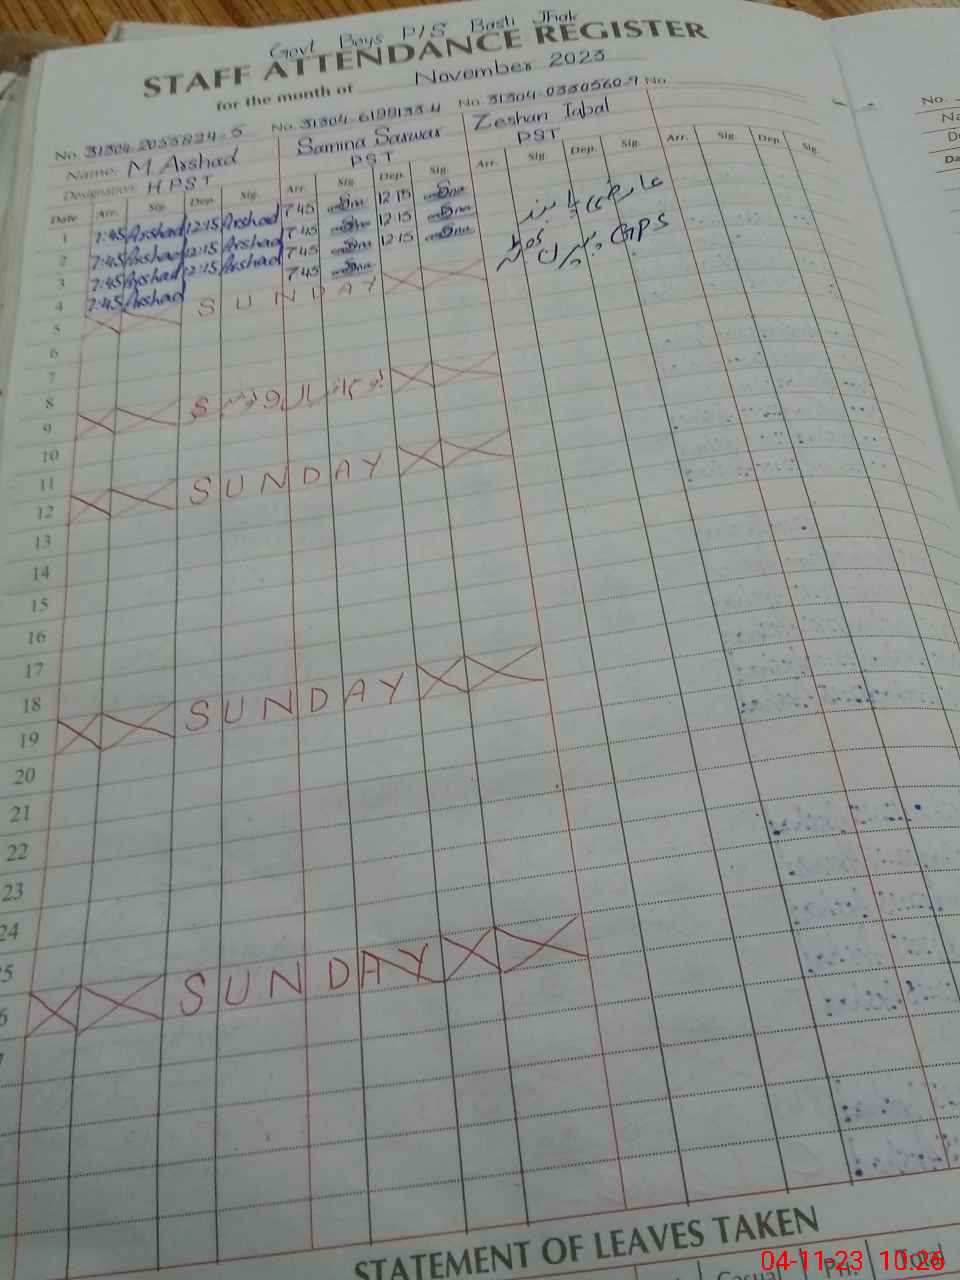 Govt Boys P/S Basti Jhak
STAFF ATTENDANCE REGISTER
for the month of November 2023
No. 31304-2055824-5 No. 31304-6199133-4 No. 31304-0330560-9 No.
Name: M Arshad Samina Sarwar Zeshan Iqbal
Designation: H PST PST PST
Date Arr. Sig. Dep. Sig. Arr. Sig. Dep. Sig. Arr. Sig. Dep. Sig. Arr. Sig. Dep. Sig.
1 7:45 Arshad 12:15 Arshad 7:45 12:15 عارضی
2 7:45 Arshad 12:15 Arshad 7:45 12:15 GPS
3 7:45 Arshad 12:15 Arshad 7:45 12:15
4 7:45 Arshad 7:45
5 SUNDAY
6
7
8
9
10
11
12 SUNDAY
13
14
15
16
17
18
19 SUNDAY
20
21
22
23
24
5
6 SUNDAY
7
STATEMENT OF LEAVES TAKEN
Casual Total
04-11-23 10:26
No.